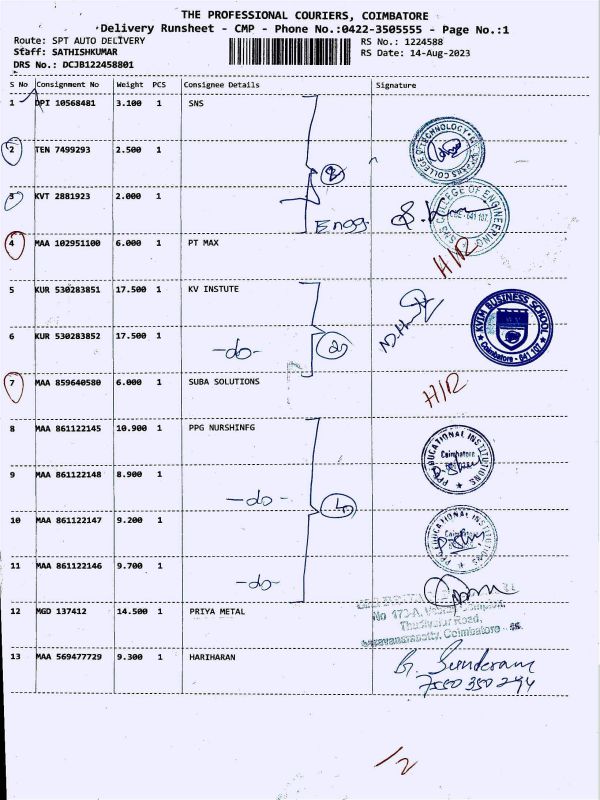 THE PROFESSIONAL COURIERS, COIMBATORE
Delivery Runsheet - CMP - Phone No.:0422-3505555 - Page No.:1
Route: SPT AUTO DELIVERY
RS No.: 1224588
Staff: SATHISHKUMAR
RS Date: 14-Aug-2023
DRS No.: DCJB122458801
S No Consignment No Weight PCS Consignee Details Signature
1 DPI 10568481 3.100 1 SNS
2 TEN 7499293 2.500 1
3 KVT 2881923 2.000 1
Engg
COLLEGE OF TECHNOLOGY
SNS COLLEGE OF ENGINEERING
641 107
4 MAA 102951100 6.000 1 PT MAX
H/R
5 KUR 530283851 17.500 1 KV INSTUTE
6 KUR 530283852 17.500 1
-do-
2
KVIM BUSINESS SCHOOL
Coimbatore - 641 107
7 MAA 859640580 6.000 1 SUBA SOLUTIONS
H/R
8 MAA 861122145 10.900 1 PPG NURSHINFG
PPG EDUCATIONAL INSTITUTIONS
Coimbatore
9 MAA 861122148 8.900 1
-do-
4
10 MAA 861122147 9.200 1
PPG EDUCATIONAL INSTITUTIONS
11 MAA 861122146 9.700 1
-do-
12 MGD 137412 14.500 1 PRIYA METAL
Road,
Coimbatore
13 MAA 569477729 9.300 1 HARIHARAN
G. Sunderam
7550 350 294
/2